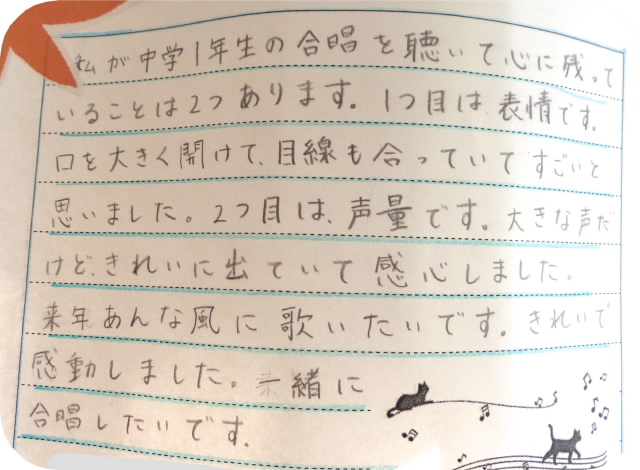 私が中学1年生の合唱を聴いて心に残って
いることは2つあります。1つ目は表情です。
口を大きく開けて、目線も合っていてすごいと
思いました。2つ目は、声量です。大きな声だ
けど、きれいに出ていて感心しました。
来年あんな風に歌いたいです。きれいで
感動しました。一緒に
合唱したいです。